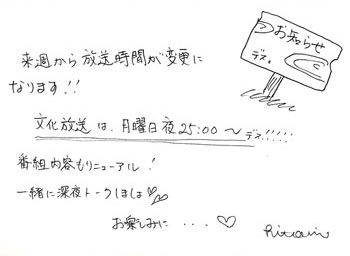 お知らせ
デス。
来週から放送時間が変更に
なります!!
文化放送は、月曜日夜25:00〜デス!!!!!
番組内容もリニューアル!
一緒に深夜トークしましょ♡♡
お楽しみに・・・♡